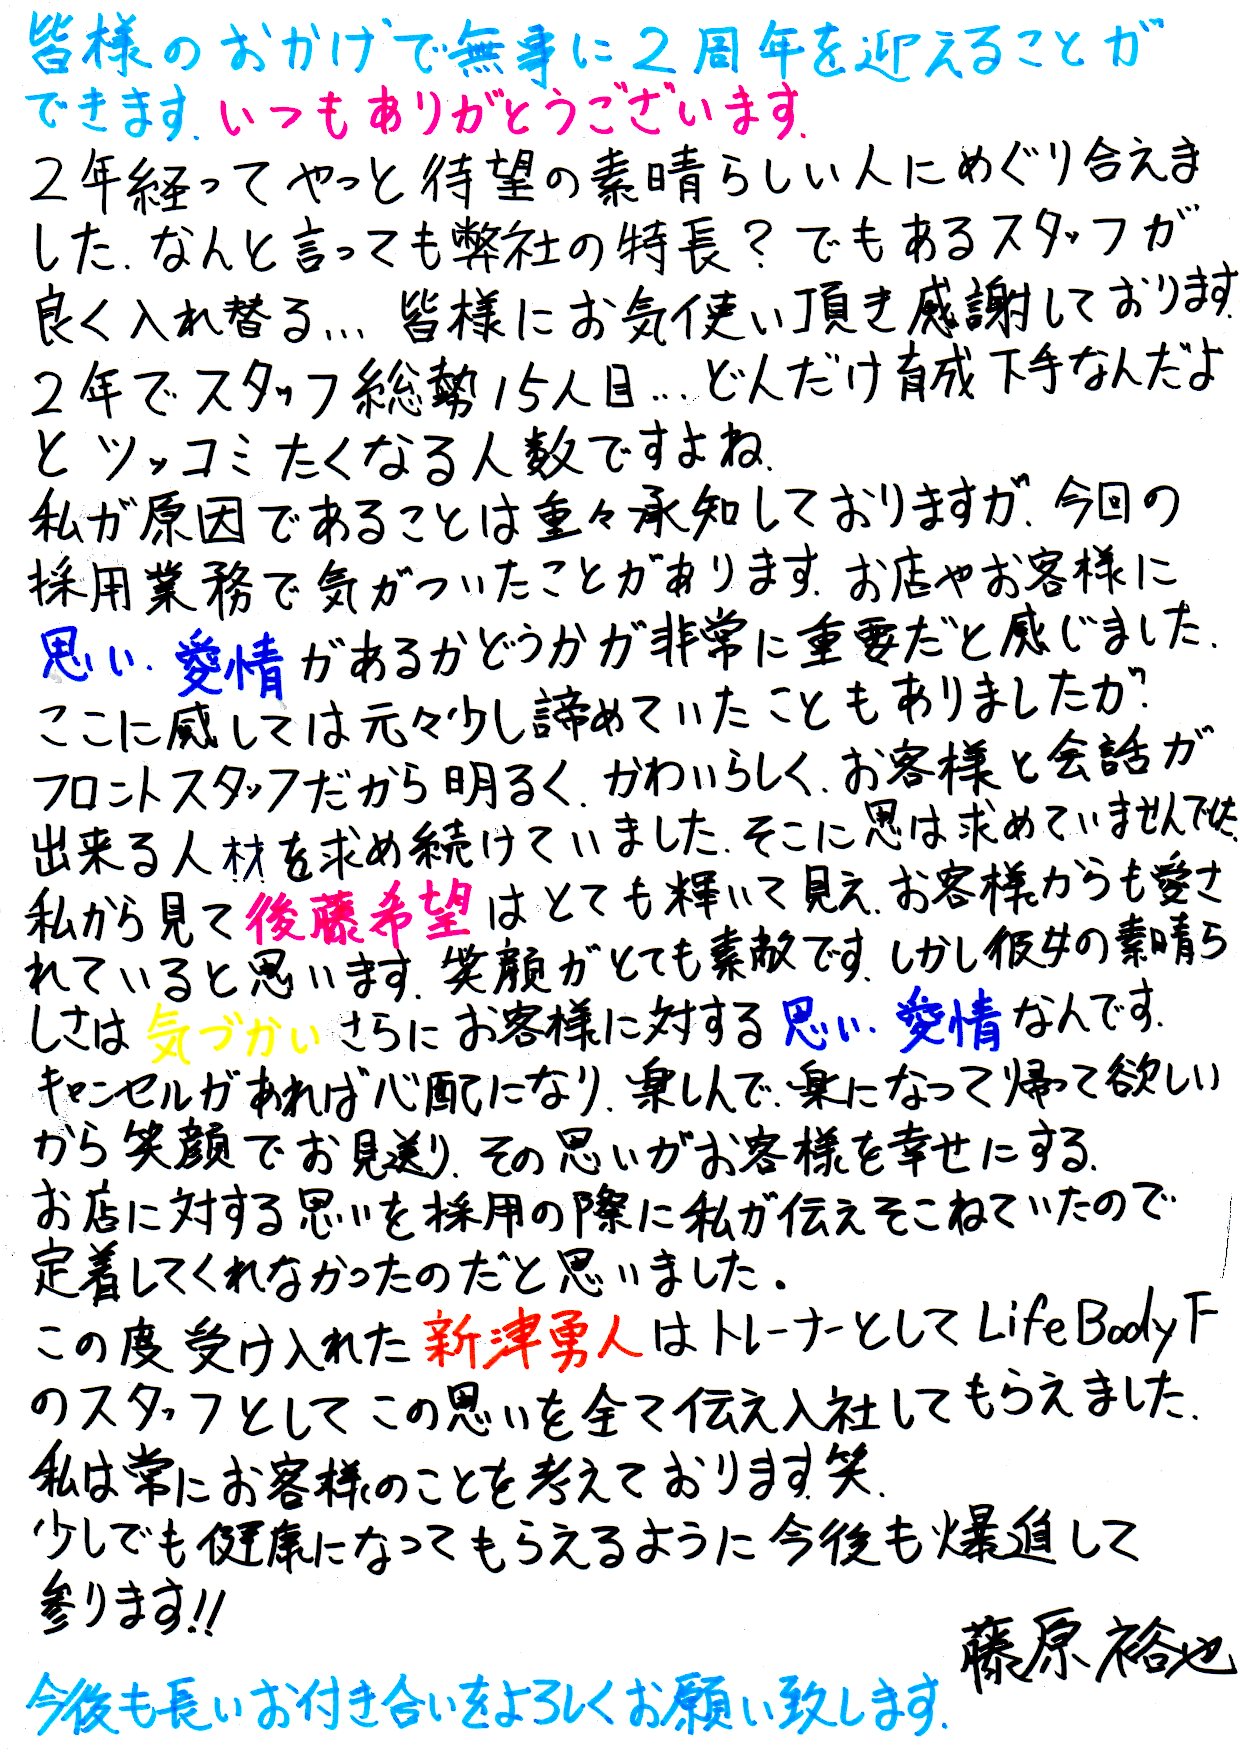 皆様のおかげで無事に2周年を迎えることが
できます.いつもありがとうございます.
2年経ってやっと待望の素晴らしい人にめぐり合えま
した.なんと言っても弊社の特長?でもあるスタッフが
良く入れ替る... 皆様にお気使い頂き感謝しております.
2年でスタッフ総勢15人目...どんだけ育成下手なんだよ
とツッコミたくなる人数ですよね.
私が原因であることは重々承知しておりますが.今回の
採用業務で気がついたことがあります.お店やお客様に
思い.愛情があるかどうかが非常に重要だと感じました.
ここに感しては元々少し諦めていたこともありましたが?
フロントスタッフだから明るく.かわいらしく.お客様と会話が
出来る人材を求め続けていました.そこに思は求めていませんでした.
私から見て後藤希望はとても輝いて見え.お客様からも愛さ
れていると思います.笑顔がとても素敵です.しかし彼女の素晴ら
しさは気づかいさらにお客様に対する思い.愛情なんです.
キャンセルがあれば心配になり.楽しんで.楽になって帰って欲しい
から笑顔でお見送り.その思いがお客様を幸せにする.
お店に対する思いを採用の際に私が伝えそこねていたので
定着してくれなかったのだと思いました.
この度受け入れた新津勇人はトレーナーとしてLifeBody下
のスタッフとしてこの思いを全て伝え入社してもらえました.
私は常にお客様のことを考えております.笑.
少しでも健康になってもらえるように今後も爆進して
参ります!!
藤原裕也
今後も長いお付き合いをよろしくお願い致します.